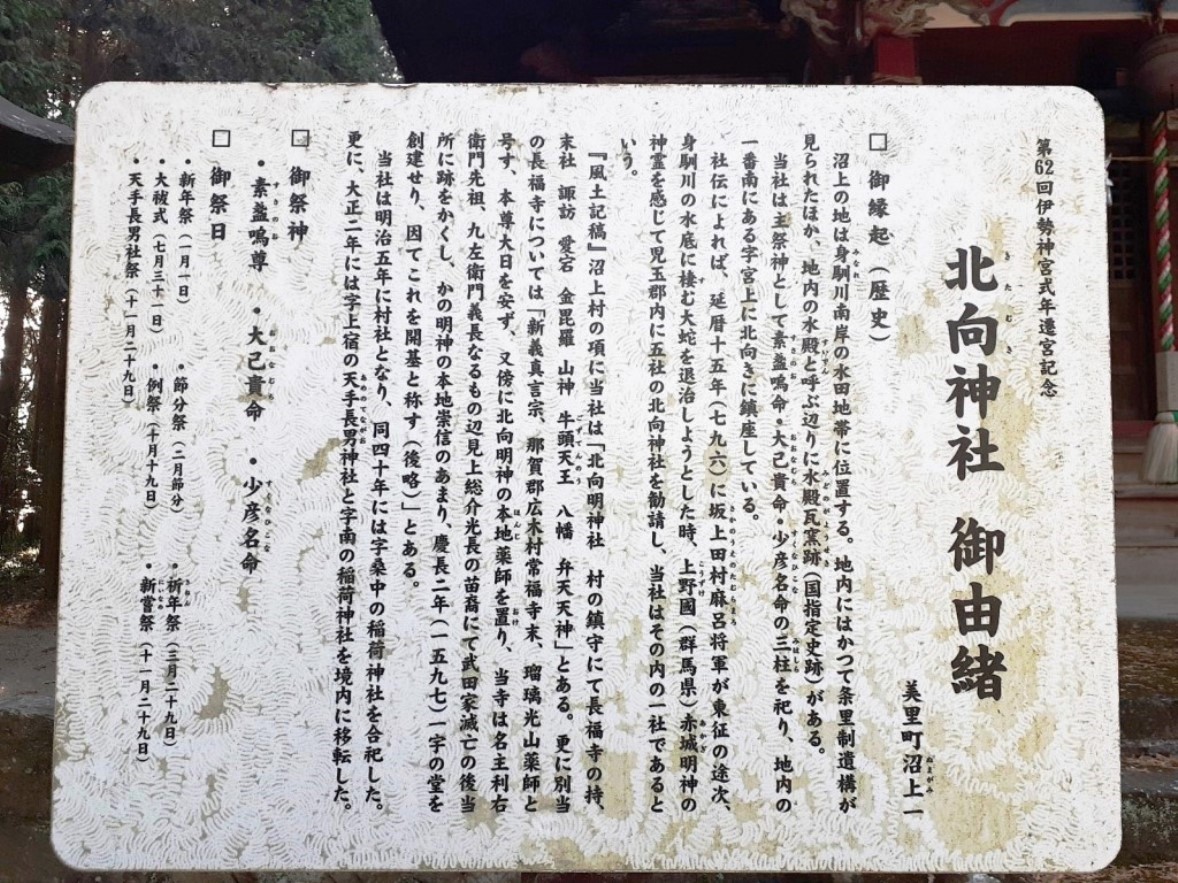 第62回伊勢神宮式年遷宮記念
北向神社 御由緒
美里町沼上一
□ 御縁起（歴史）
沼上の地は身馴川南岸の水田地帯に位置する。地内にはかつて条里制遺構が
見られたほか、地内の水殿と呼ぶ辺りに水殿瓦窯跡（国指定史跡）がある。
当社は主祭神として素盞嗚命・大己貴命・少彦名命の三柱を祀り、地内の
一番南にある字宮上に北向きに鎮座している。
社伝によれば、延暦十五年（七九六）に坂上田村麻呂将軍が東征の途次、
身馴川の水底に棲む大蛇を退治しようとした時、上野國（群馬県）赤城明神の
神霊を感じて児玉郡内に五社の北向神社を勧請し、当社はその内の一社であると
いう。
『風土記稿』沼上村の項に当社は「北向明神社 村の鎮守にて長福寺の持、
末社 諏訪 愛宕 金毘羅 山神 牛頭天王 八幡 弁天天神」とある。更に別当
の長福寺については「新義真言宗、那賀郡広木村常福寺末、瑠璃光山薬師と
号す、本尊大日を安ず、又傍に北向明神の本地薬師を置り、当寺は名主利右
衛門先祖、九左衛門義長なるもの辺見上総介光長の苗裔にて武田家滅亡の後当
所に跡をかくし、かの明神の本地崇信のあまり、慶長二年（一五九七）一字の堂を
創建せり、因てこれを開基と称す（後略）」とある。
当社は明治五年に村社となり、同四十年には字桑中の稲荷神社を合祀した。
更に、大正二年には字上宿の天手長男神社と字南の稲荷神社を境内に移転した。
□ 御祭神
・素盞嗚尊 ・大己貴命 ・少彦名命
□ 御祭日
・新年祭（一月一日） ・節分祭（二月節分） ・祈年祭（三月二十九日）
・大祓式（七月三十一日） ・例祭（十月十九日） ・新嘗祭（十一月二十九日）
・天手長男社祭（十一月二十九日）